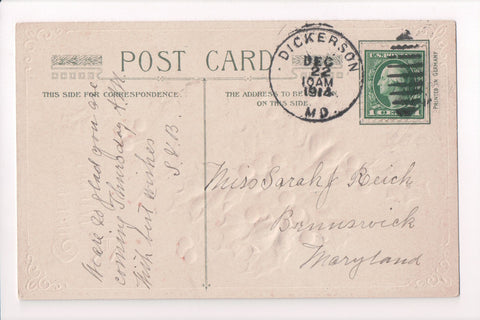 POST CARD
THIS SIDE FOR CORRESPONDENCE.
THE ADDRESS TO BE
ON THIS SIDE.
DICKERSON
DEC
22
10AM
1914
MD.
PRINTED IN GERMANY
We are so glad you are
coming Thursday A.M.
With best wishes
S.V.B.
Miss Sarah J Reich
Brunswick
Maryland